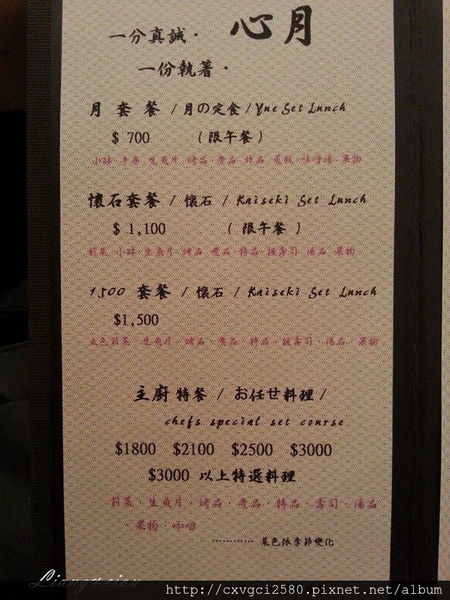 心月
一分真誠·
一份執著·
月 套 餐 / 月の定食 / Yue Set Lunch
$ 700 （限午餐）
小缽 手卷 生魚片 烤品 煮品 炸品 蒸飯 味噌湯 果物
懷石套餐 / 懷石 / Kaiseki Set Lunch
$ 1,100 （限午餐）
前菜 小缽 生魚片 烤品 煮品 特品 握壽司 湯品 果物
1500 套餐 / 懷石 / Kaiseki Set Lunch
$1,500
五色前菜 · 生魚片 · 烤品 · 煮品 · 特品 · 握壽司 · 湯品 · 果物
主廚特餐 / お任せ料理 /
chefs special set course
$1800 $2100 $2500 $3000
$3000 以上特選料理
前菜 · 生魚片 · 烤品 · 煮品 · 特品 · 壽司 · 湯品
果物 · 咖啡
············ 菜色依季節變化
http://cxvgci2580.pixnet.net/album